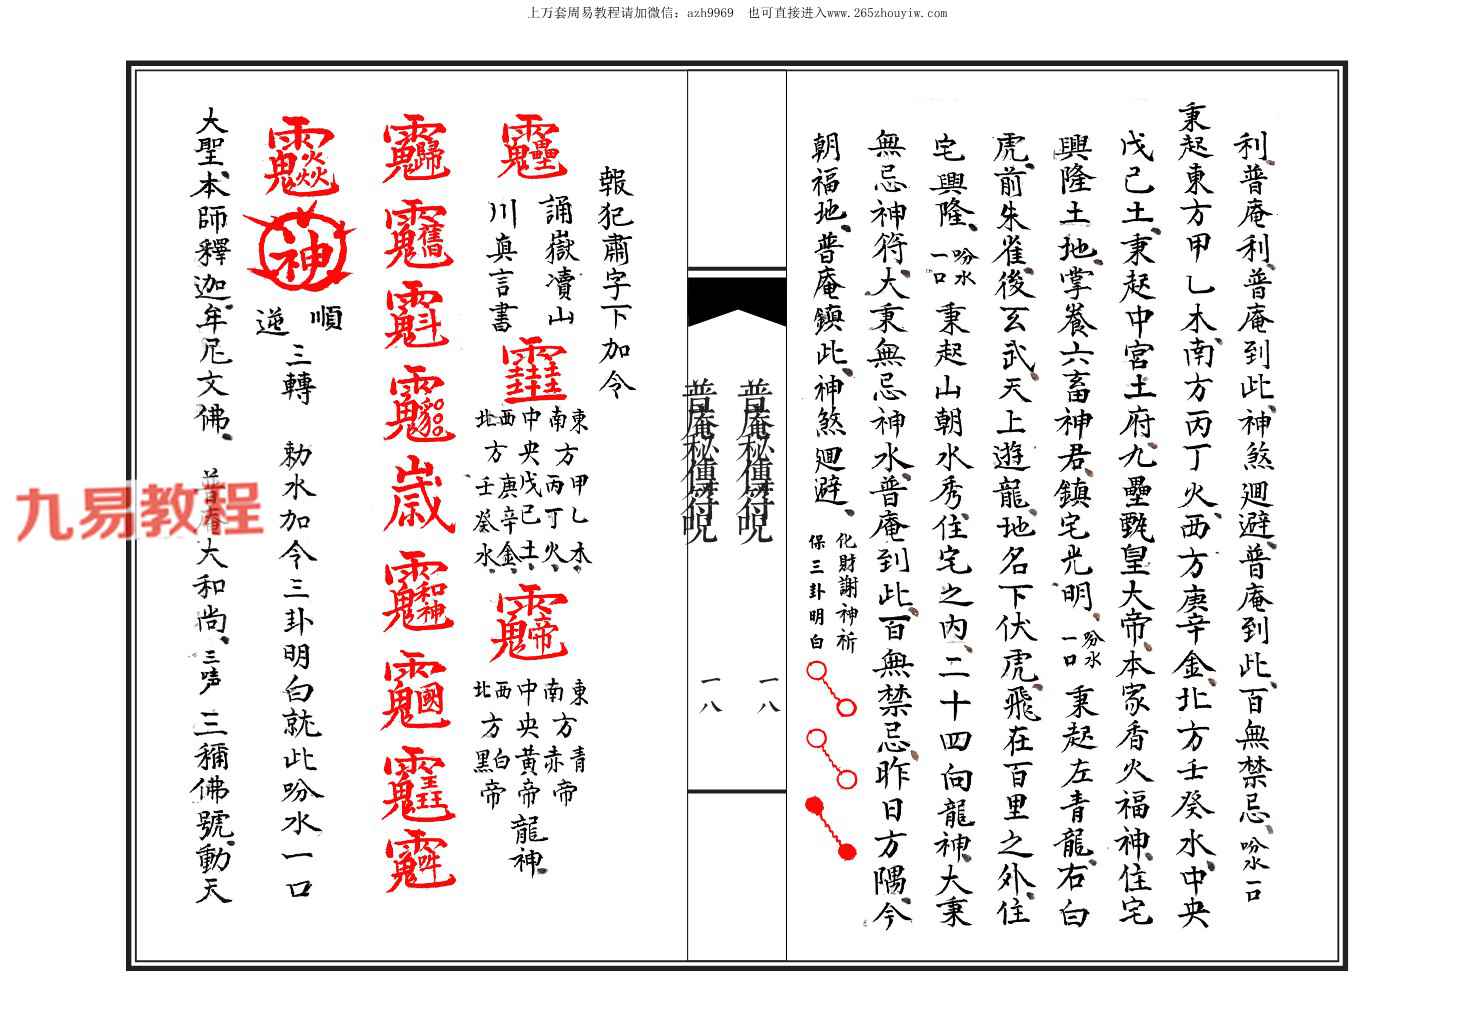 上万套周易教程请加微信：azh9969　也可直接进入www.265zhouyiw.com
利、普庵利、普庵到此、神煞迴避、普庵到此、百無禁忌、吩水一口
秉起東方甲乚木、南方丙丁火、西方庚辛金、北方壬癸水、中央
戊己土、秉起中宮土府、九壘甄皇大帝、本家香火福神、住宅
興隆土地、掌養六畜神君、鎮宅光明、吩水一口 秉起左青龍、右白
虎、前朱雀、後玄武、天上遊龍、地名下伏虎、飛在百里之外、住
宅興隆、吩水一口 秉起山朝水秀、住宅之內、二十四向龍神、大秉
無忌神符、大秉無忌神水、普庵到此、百無禁忌、昨日方隅、今
朝福地、普庵鎮此、神煞迴避、化財謝神祈保三卦明白
普庵秘傳符咒
一八
普庵秘傳符咒
一八
報犯肅字下加令
誦嶽瀆山川真言書
東方甲乚木、南方丙丁火、中央戊己土、西方庚辛金、北方壬癸水、
東方青帝 南方赤帝 中央黃帝 西方白帝 北方黑帝 龍神、
歲
神 順逆三轉 勑水加令三卦明白就此吩水一口
大聖、本師釋迦、年尼文佛、普庵大和尚、三唪 三稱佛號、動天
九易教程